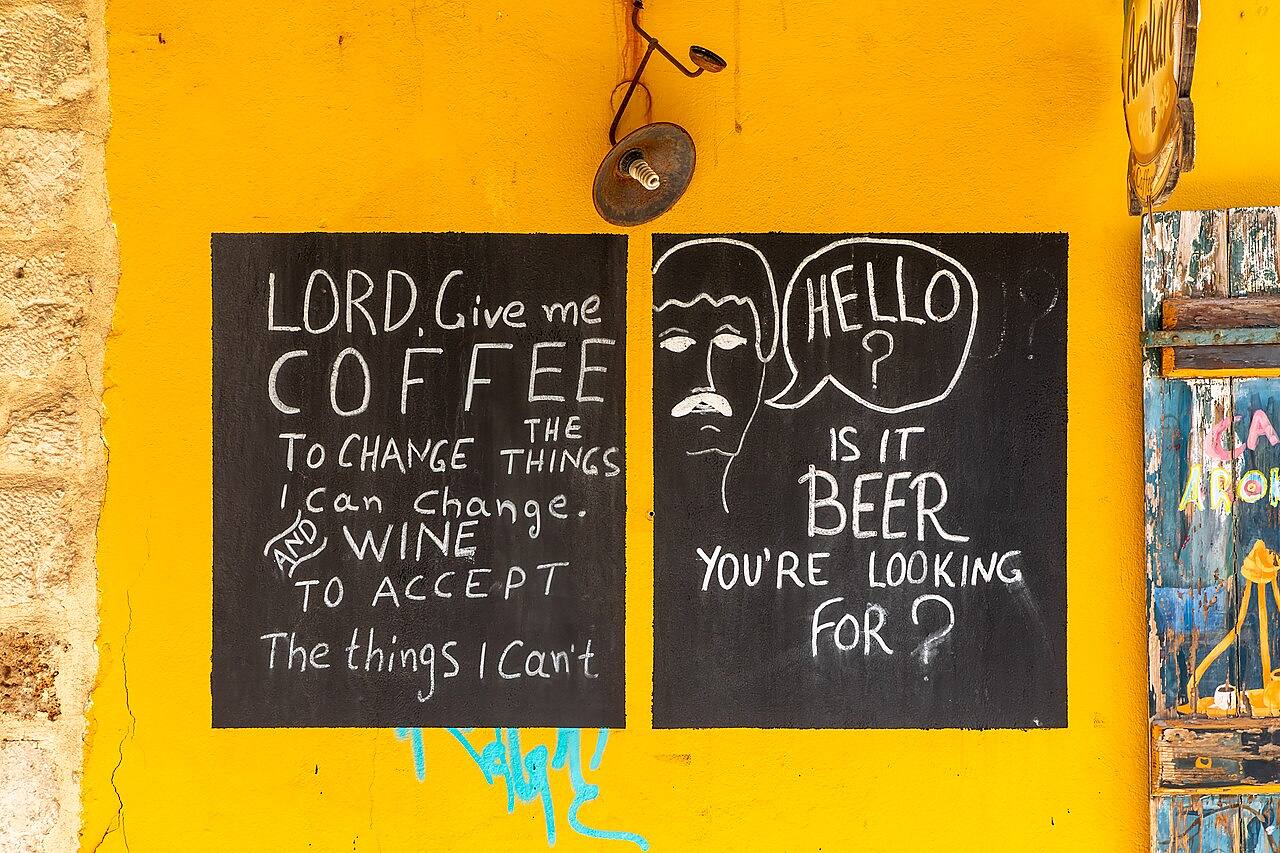 LORD. Give me
COFFEE
TO CHANGE THE THINGS
I can change.
AND WINE
TO ACCEPT
The things I Can't
HELLO
?
IS IT
BEER
YOU'RE LOOKING
FOR?